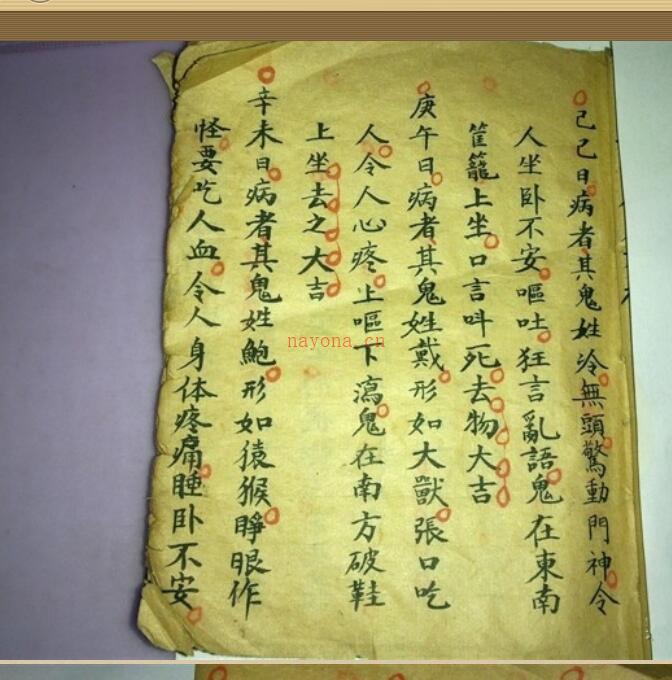 己巳日病者其鬼姓冷無頭驚動門神令
人坐卧不安嘔吐狂言亂語鬼在東南
筐籠上坐口言呌死去物大吉
庚午日病者其鬼姓戴形如大獸張口吃
人令人心疼上嘔下瀉鬼在南方破鞋
上坐去之大吉
辛未日病者其鬼姓鮑形如猿猴睜眼作
怪要吃人血令人身体疼痛睡卧不安
nayona.cn